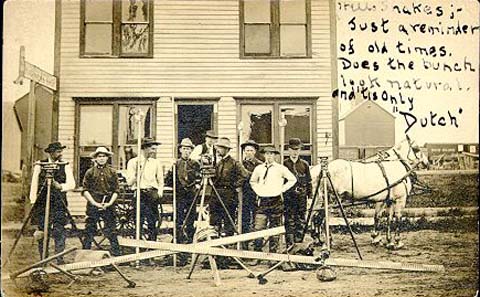 Hell Snakes;-
Just a reminder
of old times.
Does the bunch
look natural.
and "tis only
"Dutch"